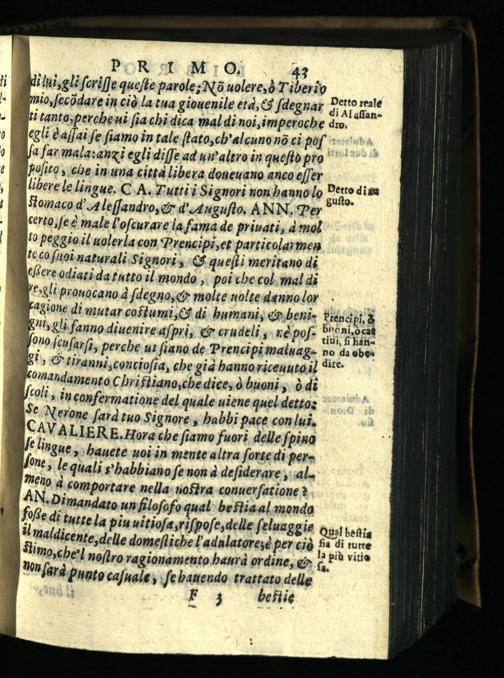 PRIMO. 43
di lui, gli scrisse queste parole; Nō uolere, ò Tiberio
mio, secōdare in ciò la tua giouenile età, & sdegnar
ti tanto, perche ui sia chi dica mal di noi, imperoche
egli è assai se siamo in tale stato, ch'alcuno nō ci pos
sa far mala: anzi egli disse ad un'altro in questo pro
posito, che in una città libera doneuano anco esser
libere le lingue. CA. Tutti i Signori non hanno lo
stomaco d'Alessandro, & d'Augusto. ANN. Per
certo, se è male l'oscurare la fama de priuati, è mol
to peggio il uolerla con Prencipi, et particolarmen
te co suoi naturali Signori, & questi meritano di
essere odiati da tutto il mondo, poi che col mal di
re, gli prouocano à sdegno, & molte uolte danno lor
cagione di mutar costumi, & di humani, & beni-
gni, gli fanno diuenire aspri, & crudeli, nè pos-
sono scusarsi, perche ui siano de Prencipi maluag-
gi, & tiranni, conciosia, che già hanno riceuuto il
comandamento Christiano, che dice, ò buoni, ò di
scoli, in confermatione del quale uiene quel detto:
Se Nerone sarà tuo Signore, habbi pace con lui.
CAVALIERE. Hora che siamo fuori delle spino
se lingue, hauete uoi in mente altra sorte di per-
sone, le quali s'habbiano se non à desiderare, al-
meno à comportare nella nostra conuersatione?
AN. Dimandato un filosofo qual bestia al mondo
fosse di tutte la piu uitiosa, rispose, delle seluaggie
il maldicente, delle domestiche l'adulatore; è per ciò
stimo, che'l nostro ragionamento haurà ordine, &
non sarà punto casuale, se hauendo trattato delle
F 3 bestie
Detto reale
di Alessan-
dro.
Detto di au
gusto.
Prencipi, ò
buoni, ò cat
tiui, si han-
no da obe-
dire.
Qual bestia
sia di tutte
la più vitio
sa.